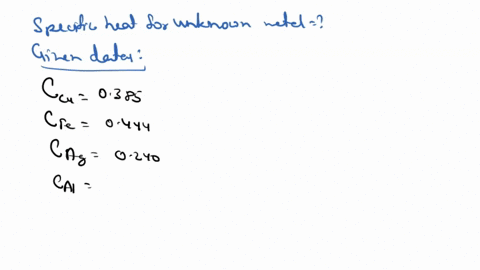 Specific heat for unknown metal=?
Given data:
C Cu = 0.385
C Fe = 0.444
C Ag = 0.240
C Al =